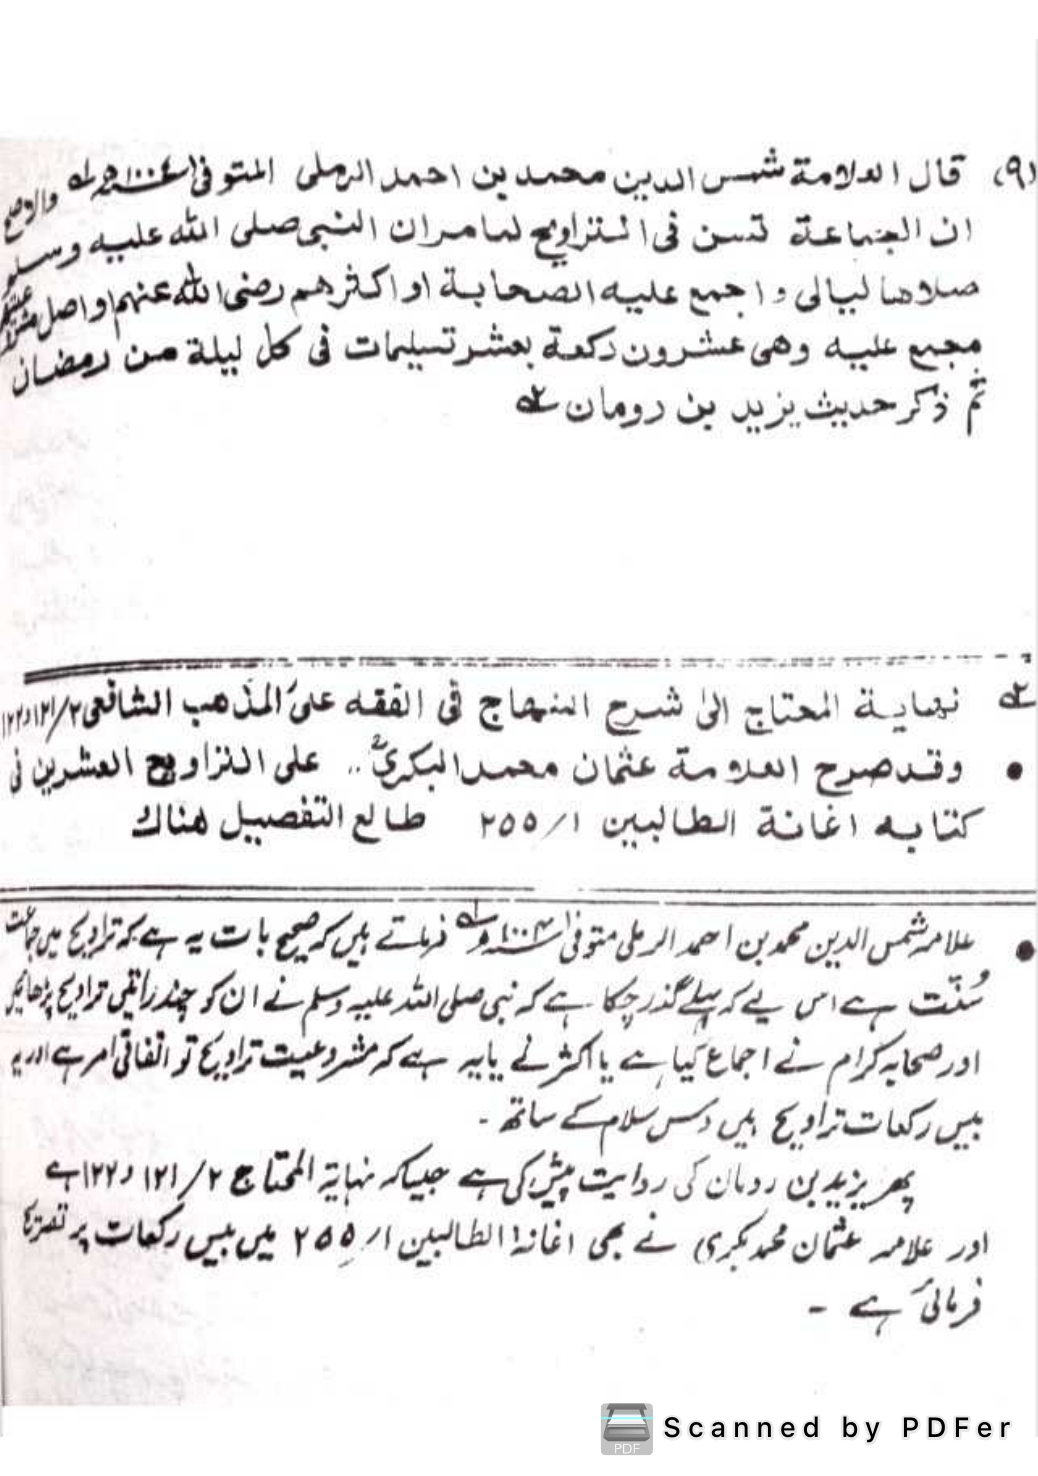 (٩) قال العلامة شمس الدين محمد بن احمد الرملى المتوفى ١٠٠٤ھ والاصح
ان الجماعة تسن فى التراويح لما مر ان النبى صلى الله عليه وسلم
صلاها ليالى واجمع عليه الصحابة او اكثرهم رضى الله عنهم او اصل مشروعيتها
مجمع عليه وهى عشرون ركعة بعشر تسليمات فى كل ليلة من رمضان
ثم ذكر حديث يزيد بن رومان
نهاية المحتاج الى شرح المنهاج فى الفقه على المذهب الشافعى ٢/ ١٢١ و ١٢٢
• وقد صرح العلامة عثمان محمد البكرىؒ .. على التراويح العشرين فى
كتابه اغانة الطالبين ١/ ٢٥٥ طالع التفصيل هناك
• علامہ شمس الدین محمد بن احمد الرملی متوفی ١٠٠٤ھ فرماتے ہیں کہ صحیح بات یہ ہے کہ تراویح میں جماعت
سُنّت ہے اس لیے کہ پہلے گذر چکا ہے کہ نبی صلی اللہ علیہ وسلم نے ان کو چند راتیں تراویح پڑھائیں
اور صحابہ کرام نے اجماع کیا ہے یا اکثر نے یا یہ ہے کہ مشروعیت تراویح تو اتفاقی امر ہے اور یہ
بیس رکعات تراویح ہیں دس سلام کے ساتھ ۔
پھر یزید بن رومان کی روایت پیش کی ہے جیسا کہ نہایۃ المحتاج ٢/ ١٢١ و ١٢٢ ہے
اور علامہ عثمان محمد بکری نے بھی اغانۃ الطالبین ١/ ٢٥٥ میں بیس رکعات پر تصریح
فرمائی ہے ۔
Scanned by PDFer
PDF